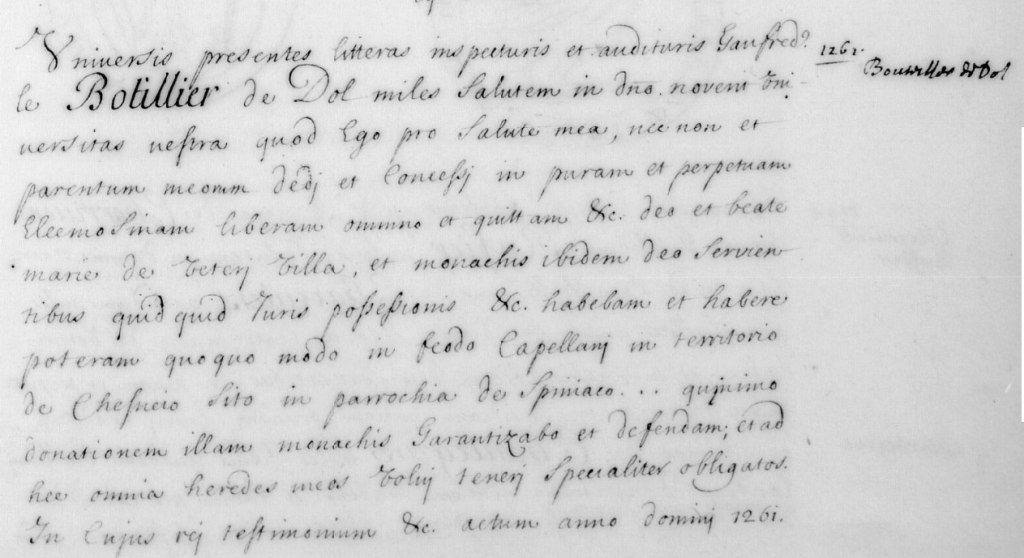 Universis presentes litteras inspecturis et audituris Gaufred?
1261.
Bouteiller de Dol
le Botillier de Dol miles Salutem in dno. noverit Vni-
versitas vestra quod Ego pro Salute mea, nec non et
parentum meorum dedj et Concessj in puram et perpetuam
Eleemosinam liberam omnino et quittam &c. deo et beate
marie de Veterj Villa, et monachis ibidem deo Servien-
tibus quidquid Juris possessionis &c. habebam et habere
poteram quoquo modo in feodo Capellanj in territorio
de Chesneio Sito in parrochia de Spiniaco... quinimo
donationem illam monachis Garantizabo et defendam; et ad
hec omnia heredes meos Voluj tenerj Specialiter obligatos.
In Cujus rej testimonium &c. actum anno dominj 1261.